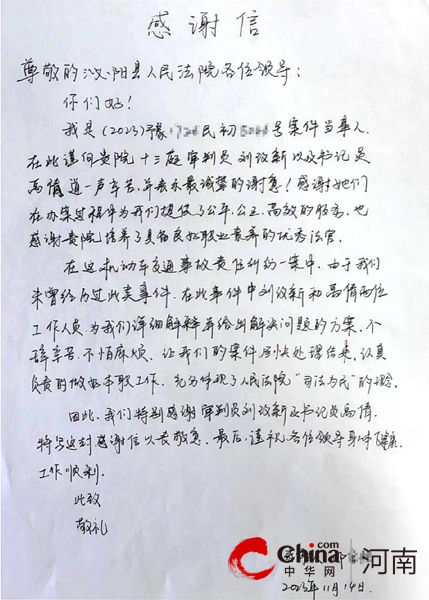 感谢信
尊敬的泌阳县人民法院各位领导:
你们好!
我是(2023)豫17 民初 号案件当事人,
在此谨向贵院十三庭审判员刘改新以及书记员
高倩道一声辛苦,并表示最诚挚的谢意!感谢她们
在办案过程中为我们提供了公平,公正,高效的服务,也
感谢贵院培养了具备良好职业素养的优秀法官。
在这起机动车交通事故责任纠纷一案中,由于我们
未曾经历过此类事件,在此事件中刘改新和高倩两位
工作人员,为我们详细解释并给出解决问题的方案,不
辞辛苦,不怕麻烦,让我们的案件尽快处理结束,认真
负责的做好本职工作,充分体现了人民法院“司法为民”的理念
因此,我们特别感谢审判员刘改新及书记员高倩,
特写这封感谢信以表敬意。最后,谨祝各位领导身体健康,
工作顺利.
此致
敬礼
China.com
中华网
河南
2023年11月14日.